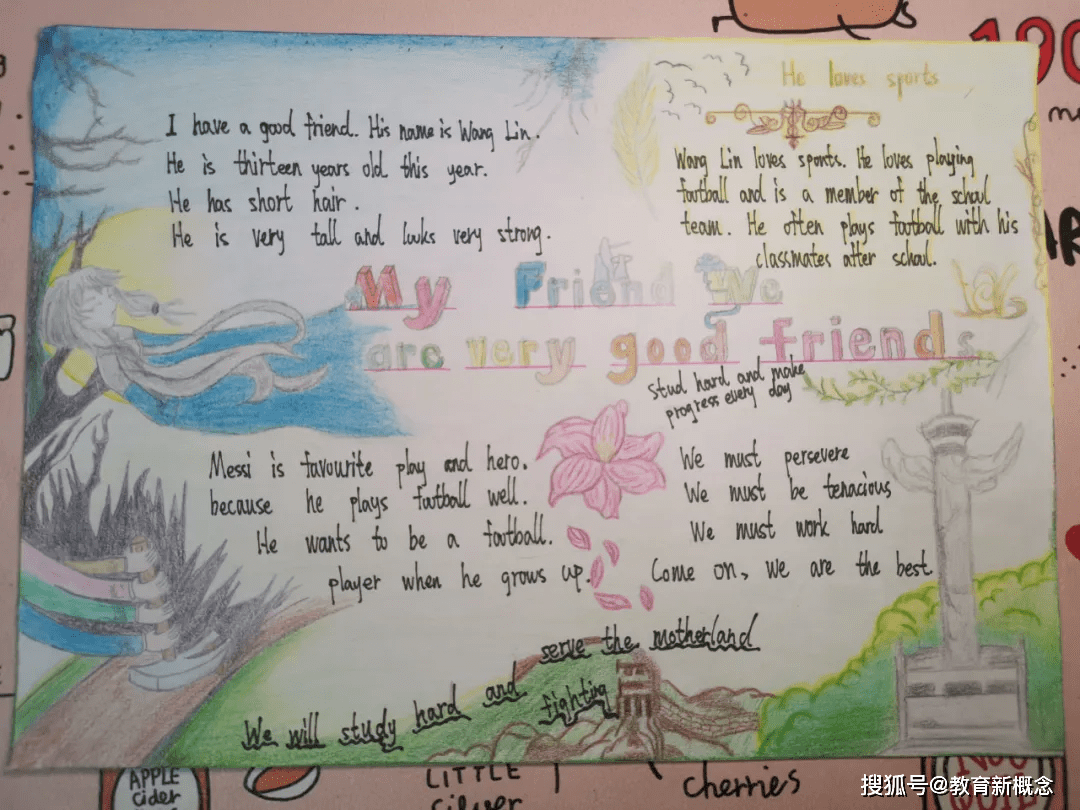 He loves sports
I have a good friend. His name is Wang Lin.
He is thirteen years old this year.
He has short hair.
He is very tall and looks very strong.
Wang Lin loves sports. He loves playing
football and is a member of the school
team. He often plays football with his
classmates after school.
My Friend We
are very good friends
Stud hard and make
progress every day
Messi is favourite play and hero.
because he plays football well.
He wants to be a football.
player when he grows up.
We must persevere
We must be tenacious
We must work hard
Come on, we are the best.
We will study hard and serve the motherland
fighting
190
APPLE
cider
LITTLE
cherries
搜狐号@教育新概念